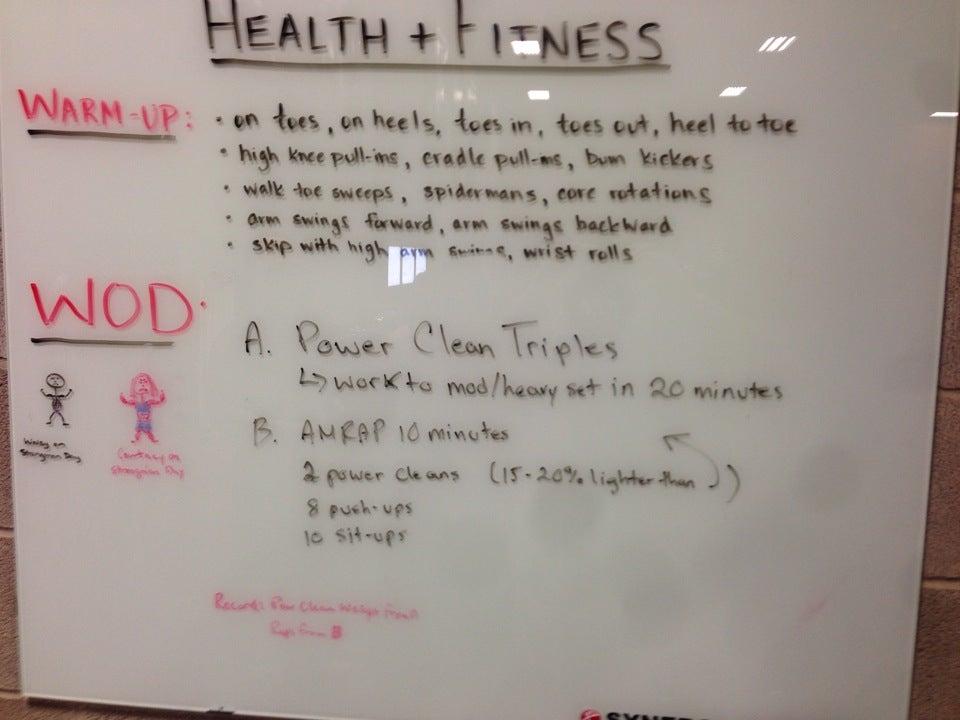 HEALTH + FITNESS
WARM-UP:
• on toes, on heels, toes in, toes out, heel to toe
• high knee pull-ins, cradle pull-ins, bum kickers
• walk toe sweeps, spidermans, core rotations
• arm swings forward, arm swings backward
• skip with high arm swings, wrist rolls
WOD:
A. Power Clean Triples
↳ work to mod/heavy set in 20 minutes
B. AMRAP 10 minutes
2 power cleans (15-20% lighter than )
8 push-ups
10 sit-ups
on
Strongman Day
on
Strongman Day
Record: Clean from A
Reps from B